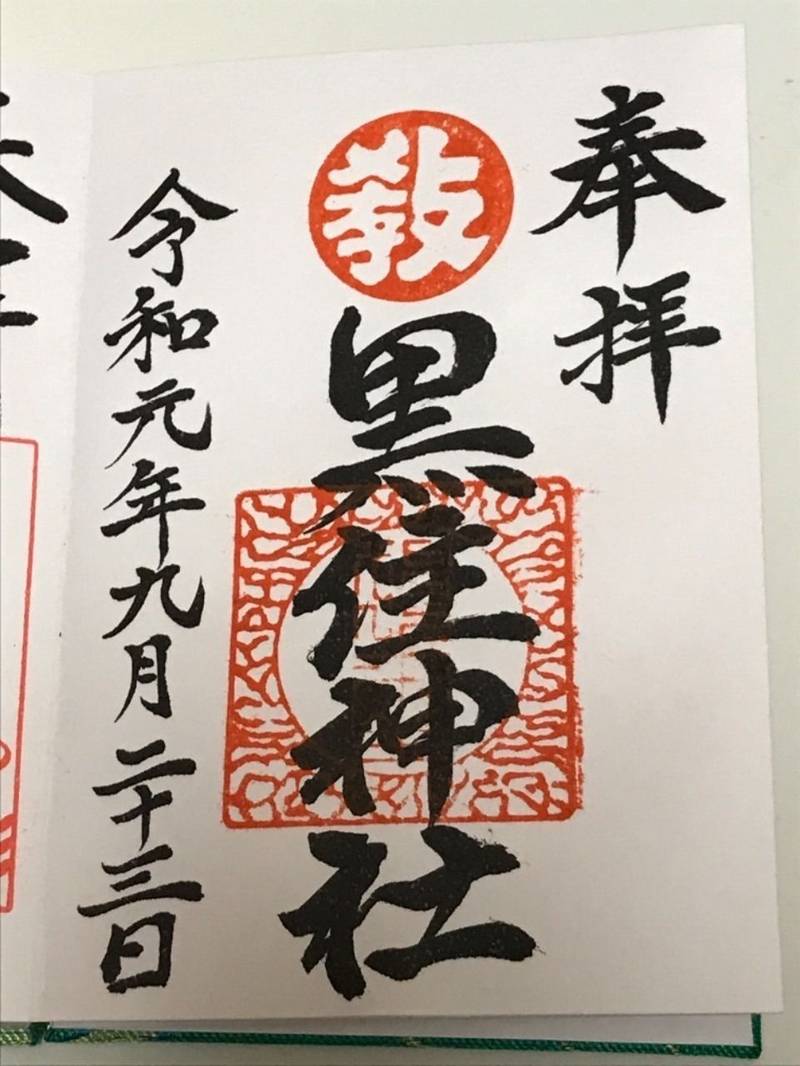 奉拝
教
黒住神社
令和元年九月二十三日